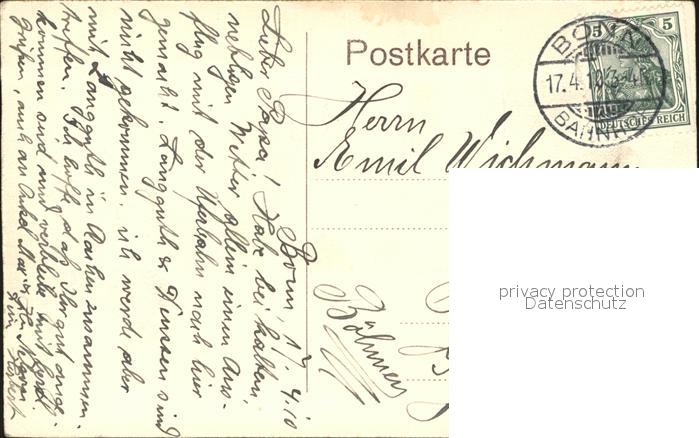 Postkarte
BONN
17.4.10
BAHNH
5
5
DEUTSCHES REICH
Herrn
Emil Wichmann
Böhmer
privacy protection
Datenschutz
Bonn, 17.4.10
Lieber Papa! Habe bei kaltem,
neblogen Wetter allein einen Aus-
flug mit der Uferbahn nach hier
gemacht. Langguth & sind
nicht gekommen. ich werde aber
mit Langguth in Aachen zusammen-
treffen. Ich hoffe, daß Ihr gut ange-
kommen seid und verbleibe mit herzl.
Grüßen, auch an Onkel Max &
Dein